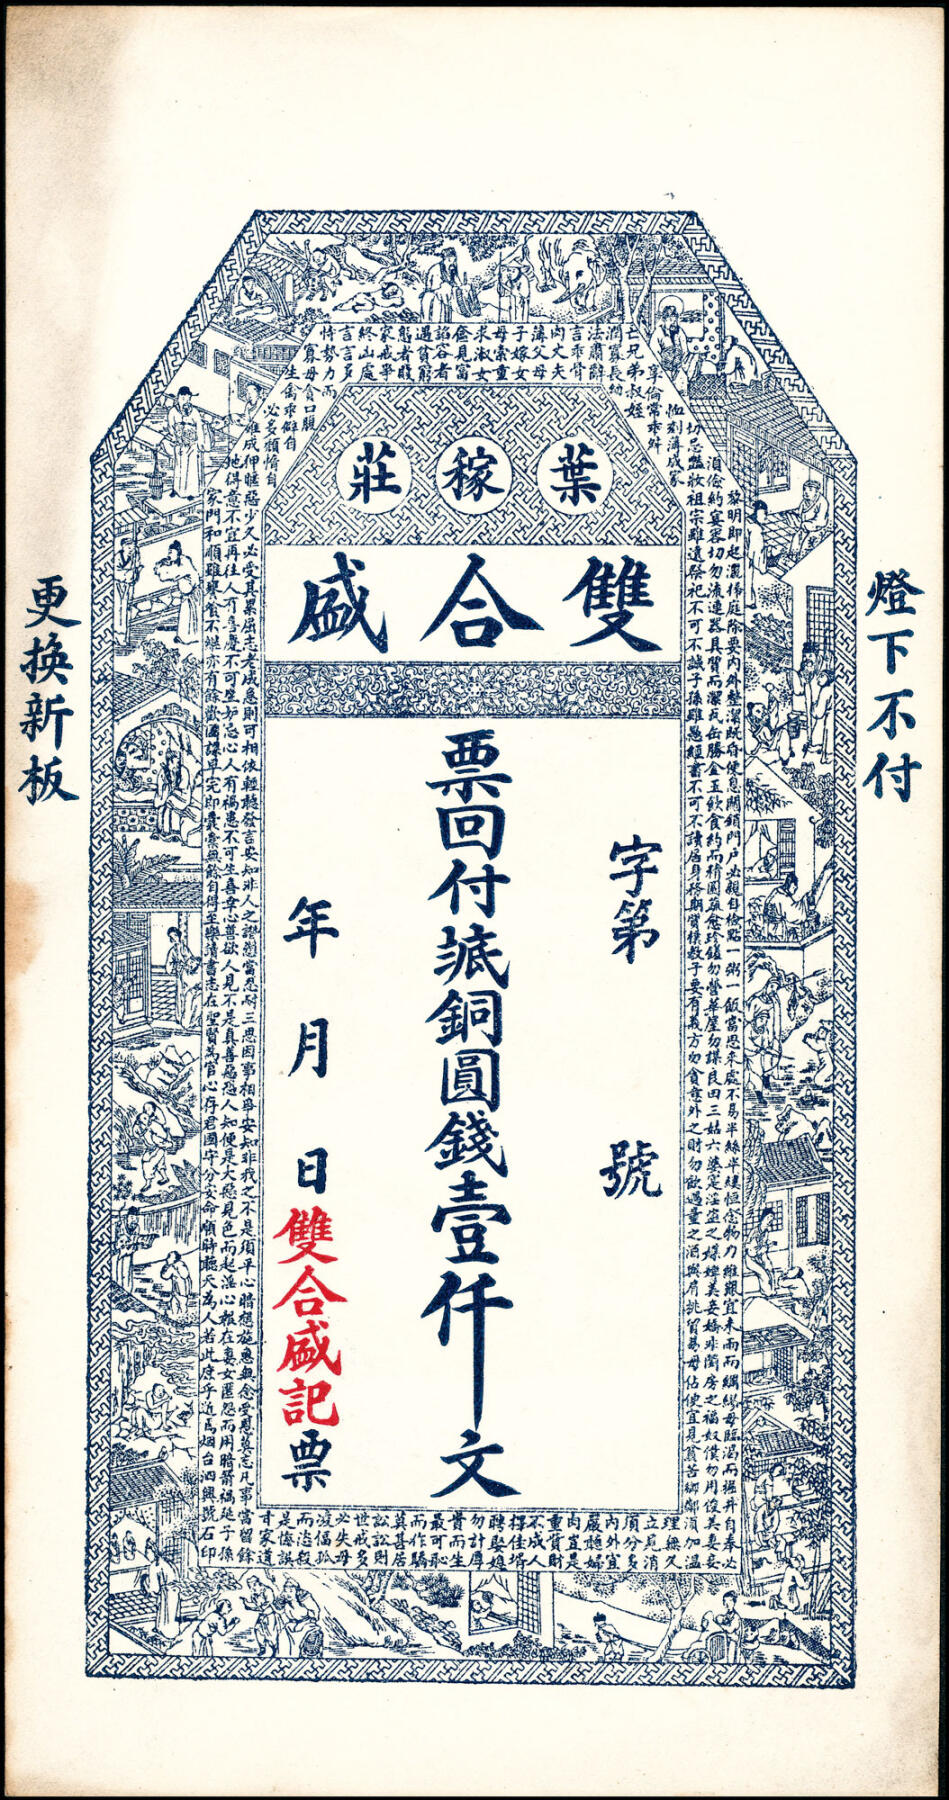 葉稼莊
雙合盛
燈下不付
字第　號
票回付䑛銅圓錢壹仟文
年　月　日雙合盛記票
更換新板
黎明即起灑掃庭除要內外整潔既昏便息關鎖門戶必親自檢點一粥一飯當思來處不易半絲半縷恒念物力維艱宜未雨而綢繆毋臨渴而掘井自奉必
須儉約宴客切勿流連器具質而潔瓦缶勝金玉飲食約而精園蔬愈珍饈勿營華屋勿謀良田三姑六婆寔淫盜之媒婢美妾嬌非閨房之福奴僕勿用俊美妻妾
切忌豔妝祖宗雖遠祭祀不可不誠子孫雖愚經書不可不讀居身務期質樸教子要有義方勿貪意外之財勿飲過量之酒與肩挑貿易毋佔便宜見貧苦鄉鄰須加溫
恤刻薄成家
理無久
享倫常乖舛
立見消
亡兄弟叔姪
須分多
潤寡長幼
內外宜
法肅辭
嚴聽婦
言乖骨
肉豈是
丈夫
重資財
薄父母
不成人
子嫁女
擇佳壻
毋索重
聘娶媳
求淑女
勿計厚
奩見富
貴而生
諂容者
最可恥
遇貧窮
而作驕
態者賤
莫甚居
家戒爭
訟訟則
終凶處
世戒多
言言多
必失毋
恃勢力而
凌偪孤
寡毋貪口腹
而恣殺
生禽乖僻自
是悔誤
必多頹惰自
甘家道
難成狎暱惡少久必受其累屈志老成急則可相依輕聽發言安知非人之譖愬當忍耐三思因事相爭安知非我之不是須平心暗想施惠無念受恩莫忘凡事當留餘
地得意不宜再往人有喜慶不可生妒忌心人有禍患不可生喜幸心善欲人見不是真善惡恐人知便是大惡見色而起淫心報在妻女匿怨而用暗箭禍延子孫
家門和順雖饔飧不繼亦有餘歡國課早完即囊橐無餘自得至樂讀書志在聖賢為官心存君國守分安命順時聽天為人若此庶乎近焉烟台洄興號石印